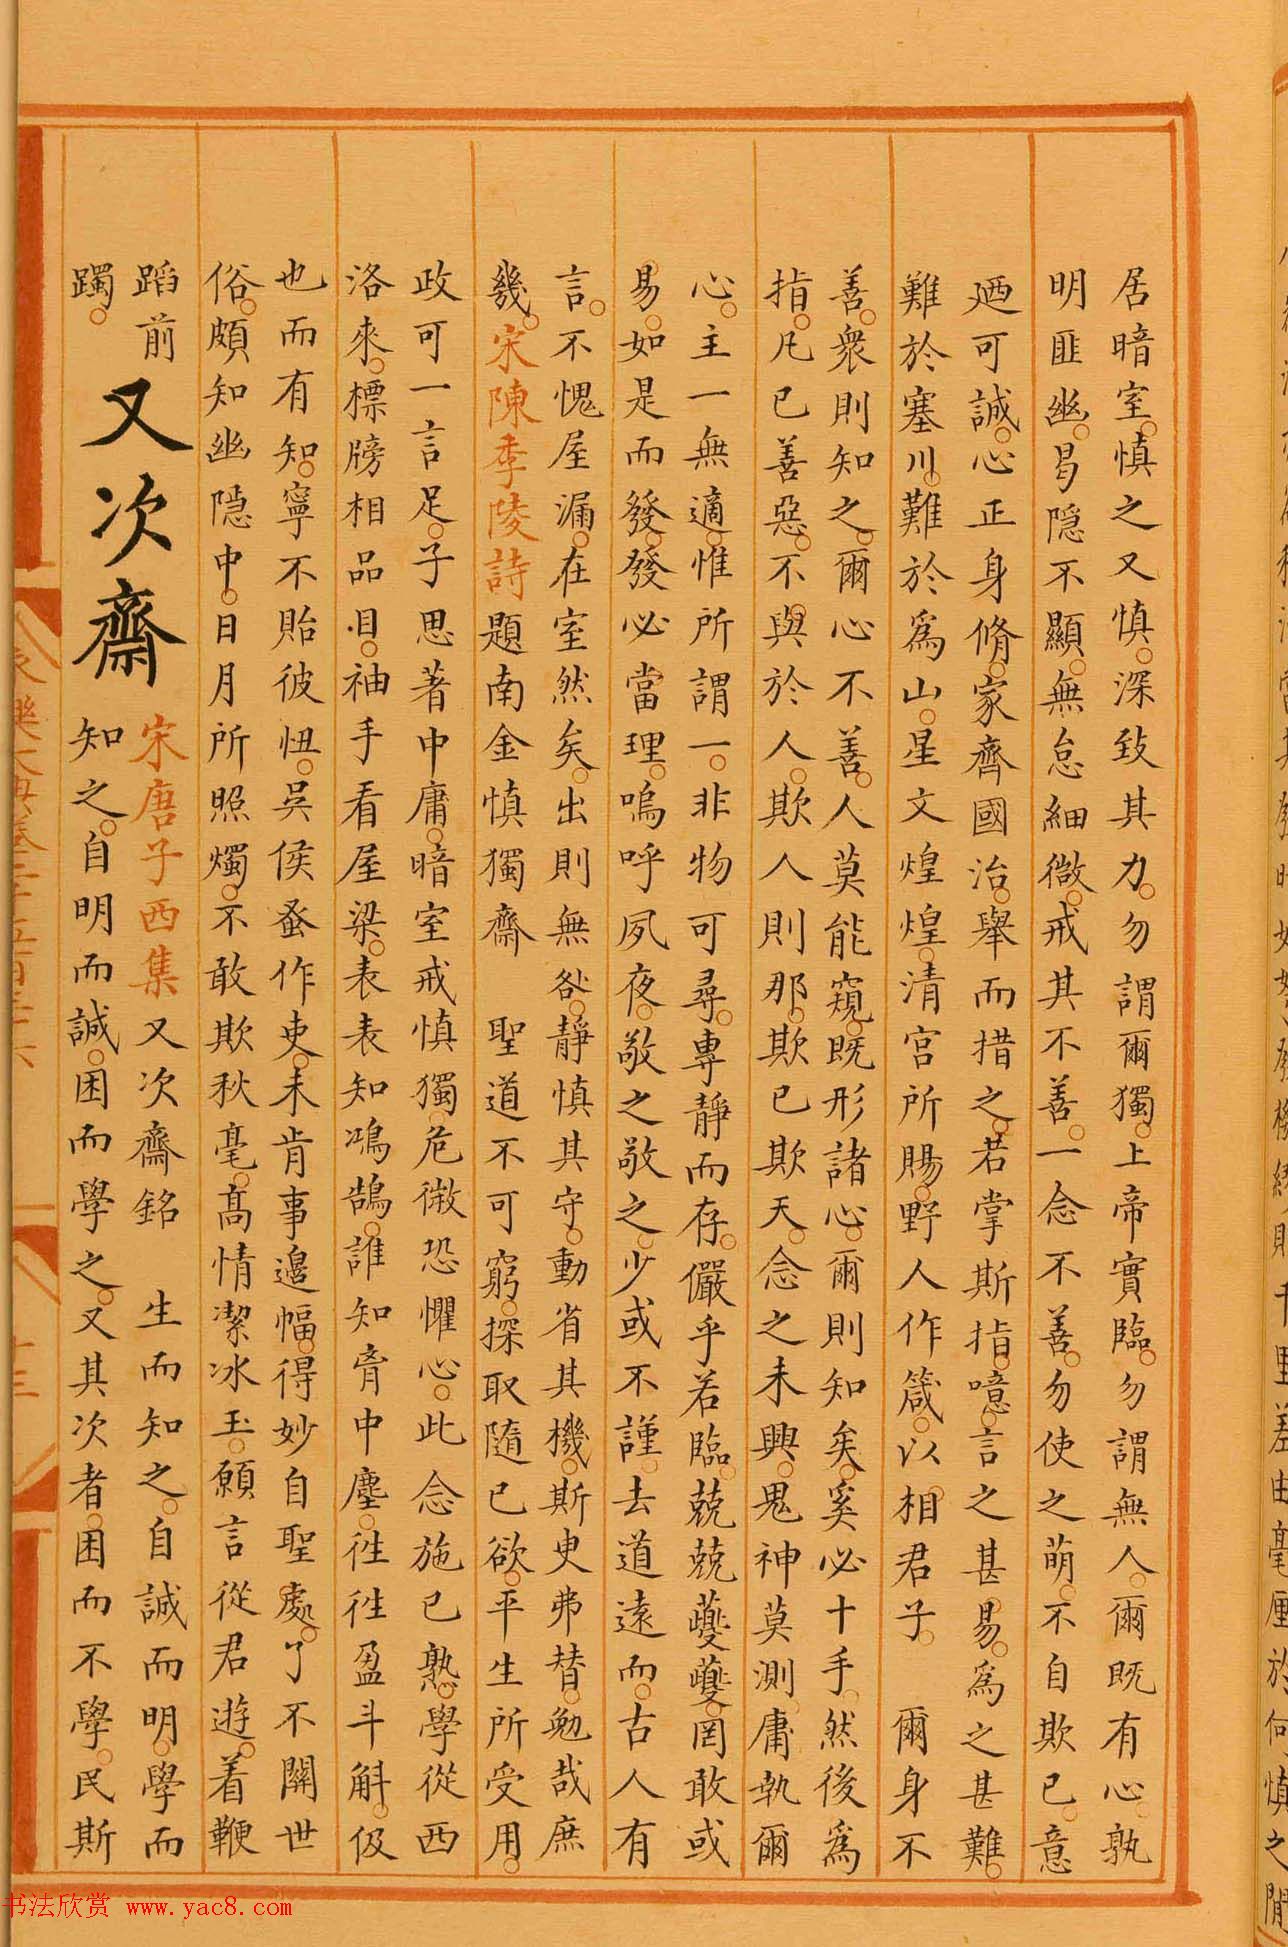 居暗室慎之又慎深致其力勿謂爾獨上帝實臨勿謂無人爾既有心孰
明匪幽曷隱不顯無怠細微戒其不善一念不善勿使之萌不自欺已意
廼可誠心正身脩家齊國治舉而措之若掌斯指噫言之甚易為之甚難
難於塞川難於為山星文煌煌清宮所賜野人作箴以相君子 爾身不
善衆則知之爾心不善人莫能窺既形諸心爾則知矣奚必十手然後為
指凡已善惡不與於人欺人則那欺已欺天念之未興鬼神莫測庸執爾
心主一無適惟所謂一非物可尋專靜而存儼乎若臨兢兢夔夔罔敢或
易如是而發發必當理嗚呼夙夜敬之敬之少或不謹去道遠而古人有
言不愧屋漏在室然矣出則無咎靜慎其守動省其機斯史弗替勉哉庶
幾宋陳季陵詩題南金慎獨齋 聖道不可窮探取隨已欲平生所受用
政可一言足子思著中庸暗室戒慎獨危微恐懼心此念施已熟學從西
洛來標牓相品目袖手看屋梁表表知鴻鵠誰知胷中塵往往盈斗斛伋
也而有知寧不貽彼忸吳侯蚤作吏未肯事邊幅得妙自聖處了不關世
俗頗知幽隱中日月所照燭不敢欺秋毫高情潔冰玉願言從君遊着鞭
蹈前
躅
又次齋
宋唐子西集又次齋銘 生而知之自誠而明學而
知之自明而誠困而學之又其次者困而不學民斯
书法欣赏 www.yac8.com